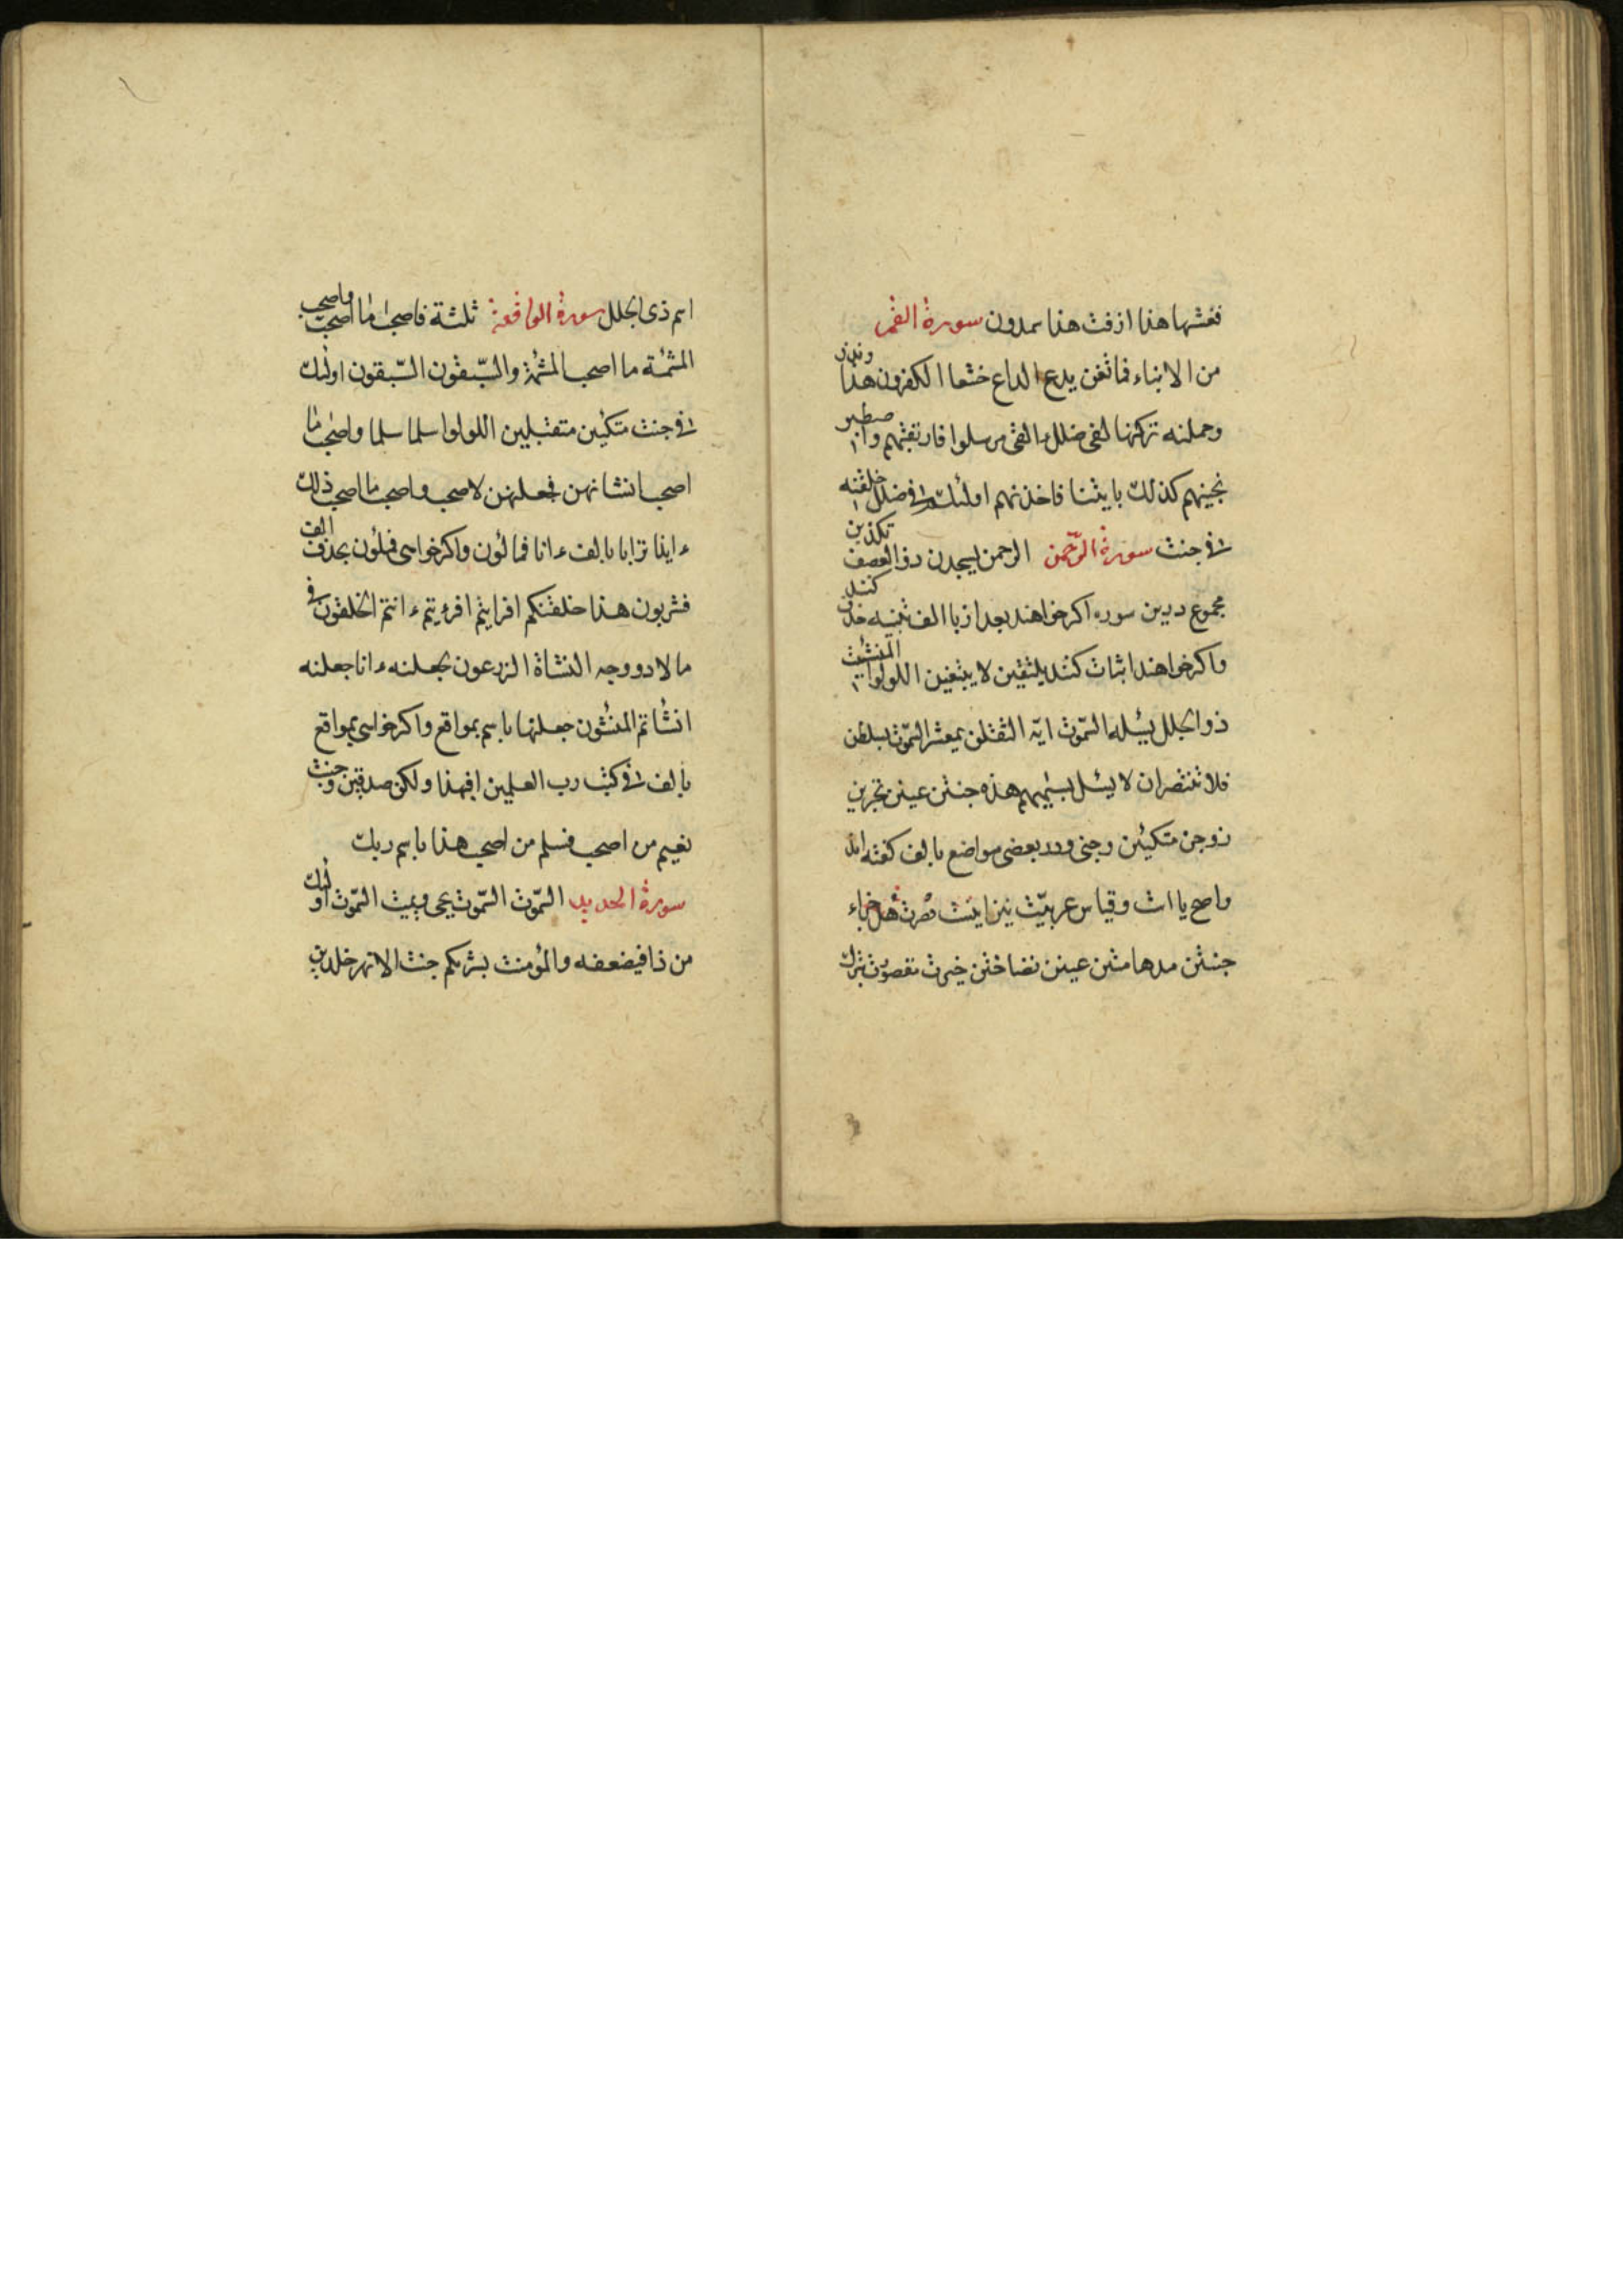 فغشها هذا ازفت هذا سمدون سورة القمر
من الانباء فما تغن يدع الداع خشعا الكفرون هذا ونذر
وحملنه تركنها لفى ضلل ءالقى مرسلوا فارتقبهم واصطبر
نجينهم كذلك بايتنا فاخذنهم اولئك فى ضلل خلقنه
فى جنت سورة الرحمن الرحمن يسجدن ذو العصف تكذبن
مجموع درين سوره اكر خواهند بعد از با الف ثبته حذف كنند
واكر خواهند اثبات كنند يلتقين لا يبغين اللولوا المنشئت
ذو الجلل يسئله السموت ايه الثقلن يمعشر السموت بسلطن
فلا تنتصران لا يسئل بسيمهم هذه جنتن عينن تجرين
زوجن متكئين وجنى ودر بعضى مواضع با لف كفته اند
واصح يا است وقياس عربيت نيز اينست قصرت هل جزاء
جنتن مدهامتن عينن نضاختن خيرت مقصورت تبرك
اسم ذى الجلل سورة الواقعة ثلثة فاصحب ما اصحب واصحب
المشئمة ما اصحب المشئمة والسبقون السبقون اولئك
فى جنت متكئين متقبلين اللولوا سلما سلما واصحب ما
اصحب انشانهن فجعلنهن لاصحب واصحب ما اصحب ذلك
ء ايذا ترابا با لف ء انا فمالئون واكر خواسى فملئون بحذف الف
فشربون هذا خلقنكم افرايتم افرءيتم ء انتم الخلقون فى
ما لا دو وجه النشاة الزرعون لجعلنه ء انا جعلنه
انشاتم المنشئون جعلنها باسم بموقع واكر خواسى بمواقع
با لف فى كتب رب العلمين افبهذا ولكن صدقين وجنت
نعيم من اصحب فسلم من اصحب هذا باسم ربك
سورة الحديد السموت السموت يحى ويميت السموت اولئك
من ذا فيضعفه والمؤمنت بشريكم جنت الانهر خلدين